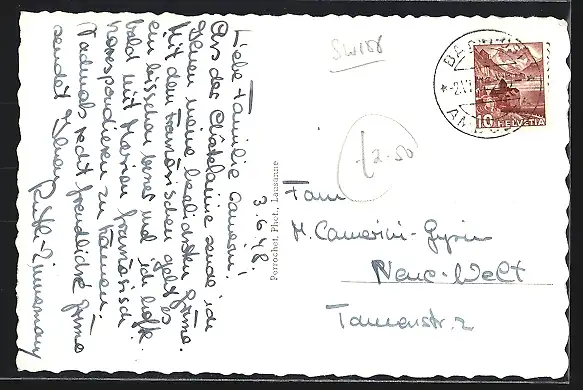 3.6.48.
Liebe Familie Camerini!
Aus der Châtelaine sende ich
Ihnen meine herzlichsten Grüsse.
Mit dem Französischen geht es
ein bisschen besser und ich hoffe
bald mit Marian französisch
korrespondieren zu können.
Nochmals recht freundliche Grüsse
sendet Ihnen
Ruth Zimmermann
Perrochet, Phot., Lausanne
SW188
£2.50
HELVETIA
10
Fam.
M. Camerini-Gysin
Neue-Welt
Tannenstr. 2